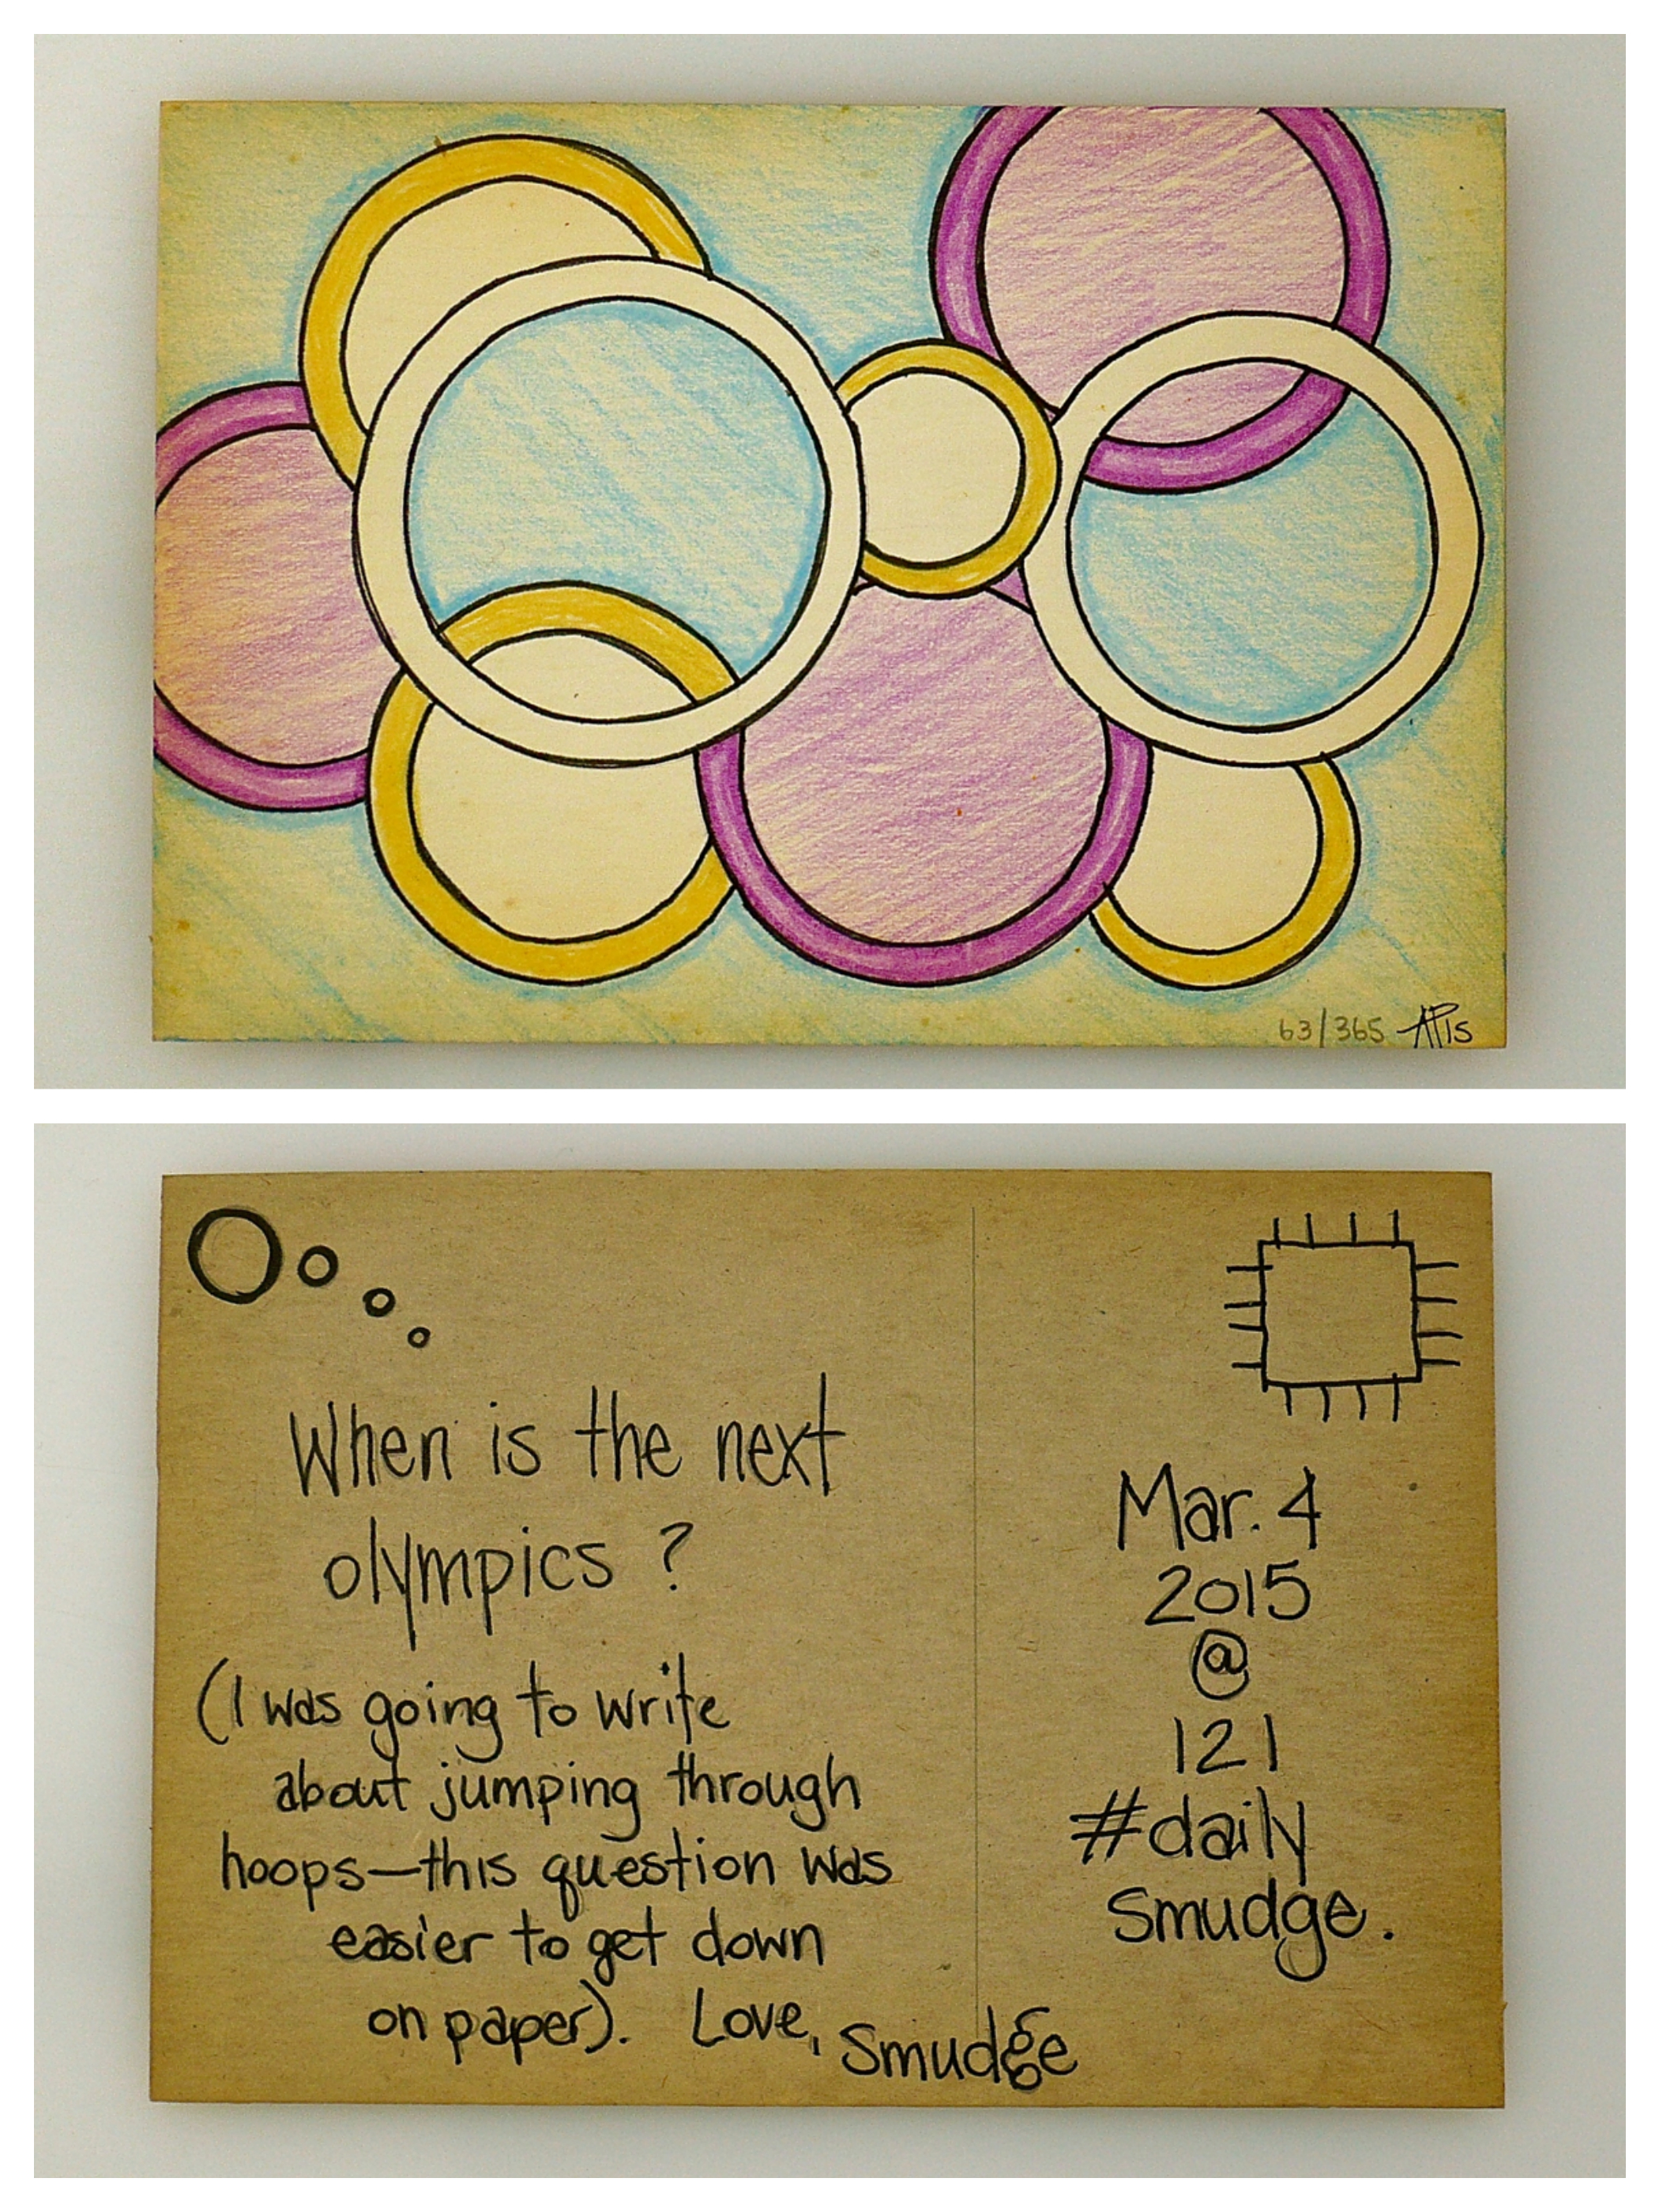 63/365 AP15
When is the next
olympics ?
(I was going to write
about jumping through
hoops—this question was
easier to get down
on paper). Love, Smudge
Mar. 4
2015
@
121
#daily
Smudge.